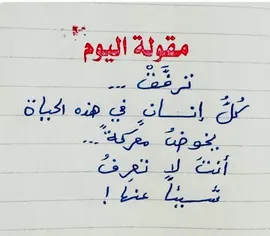 مقولة اليوم
ترفَّقْ ...
كلُّ إنسان في هذه الحياة
يخوضُ معركةً ...
أنتَ لا تعرفُ
شيئاً عنها !